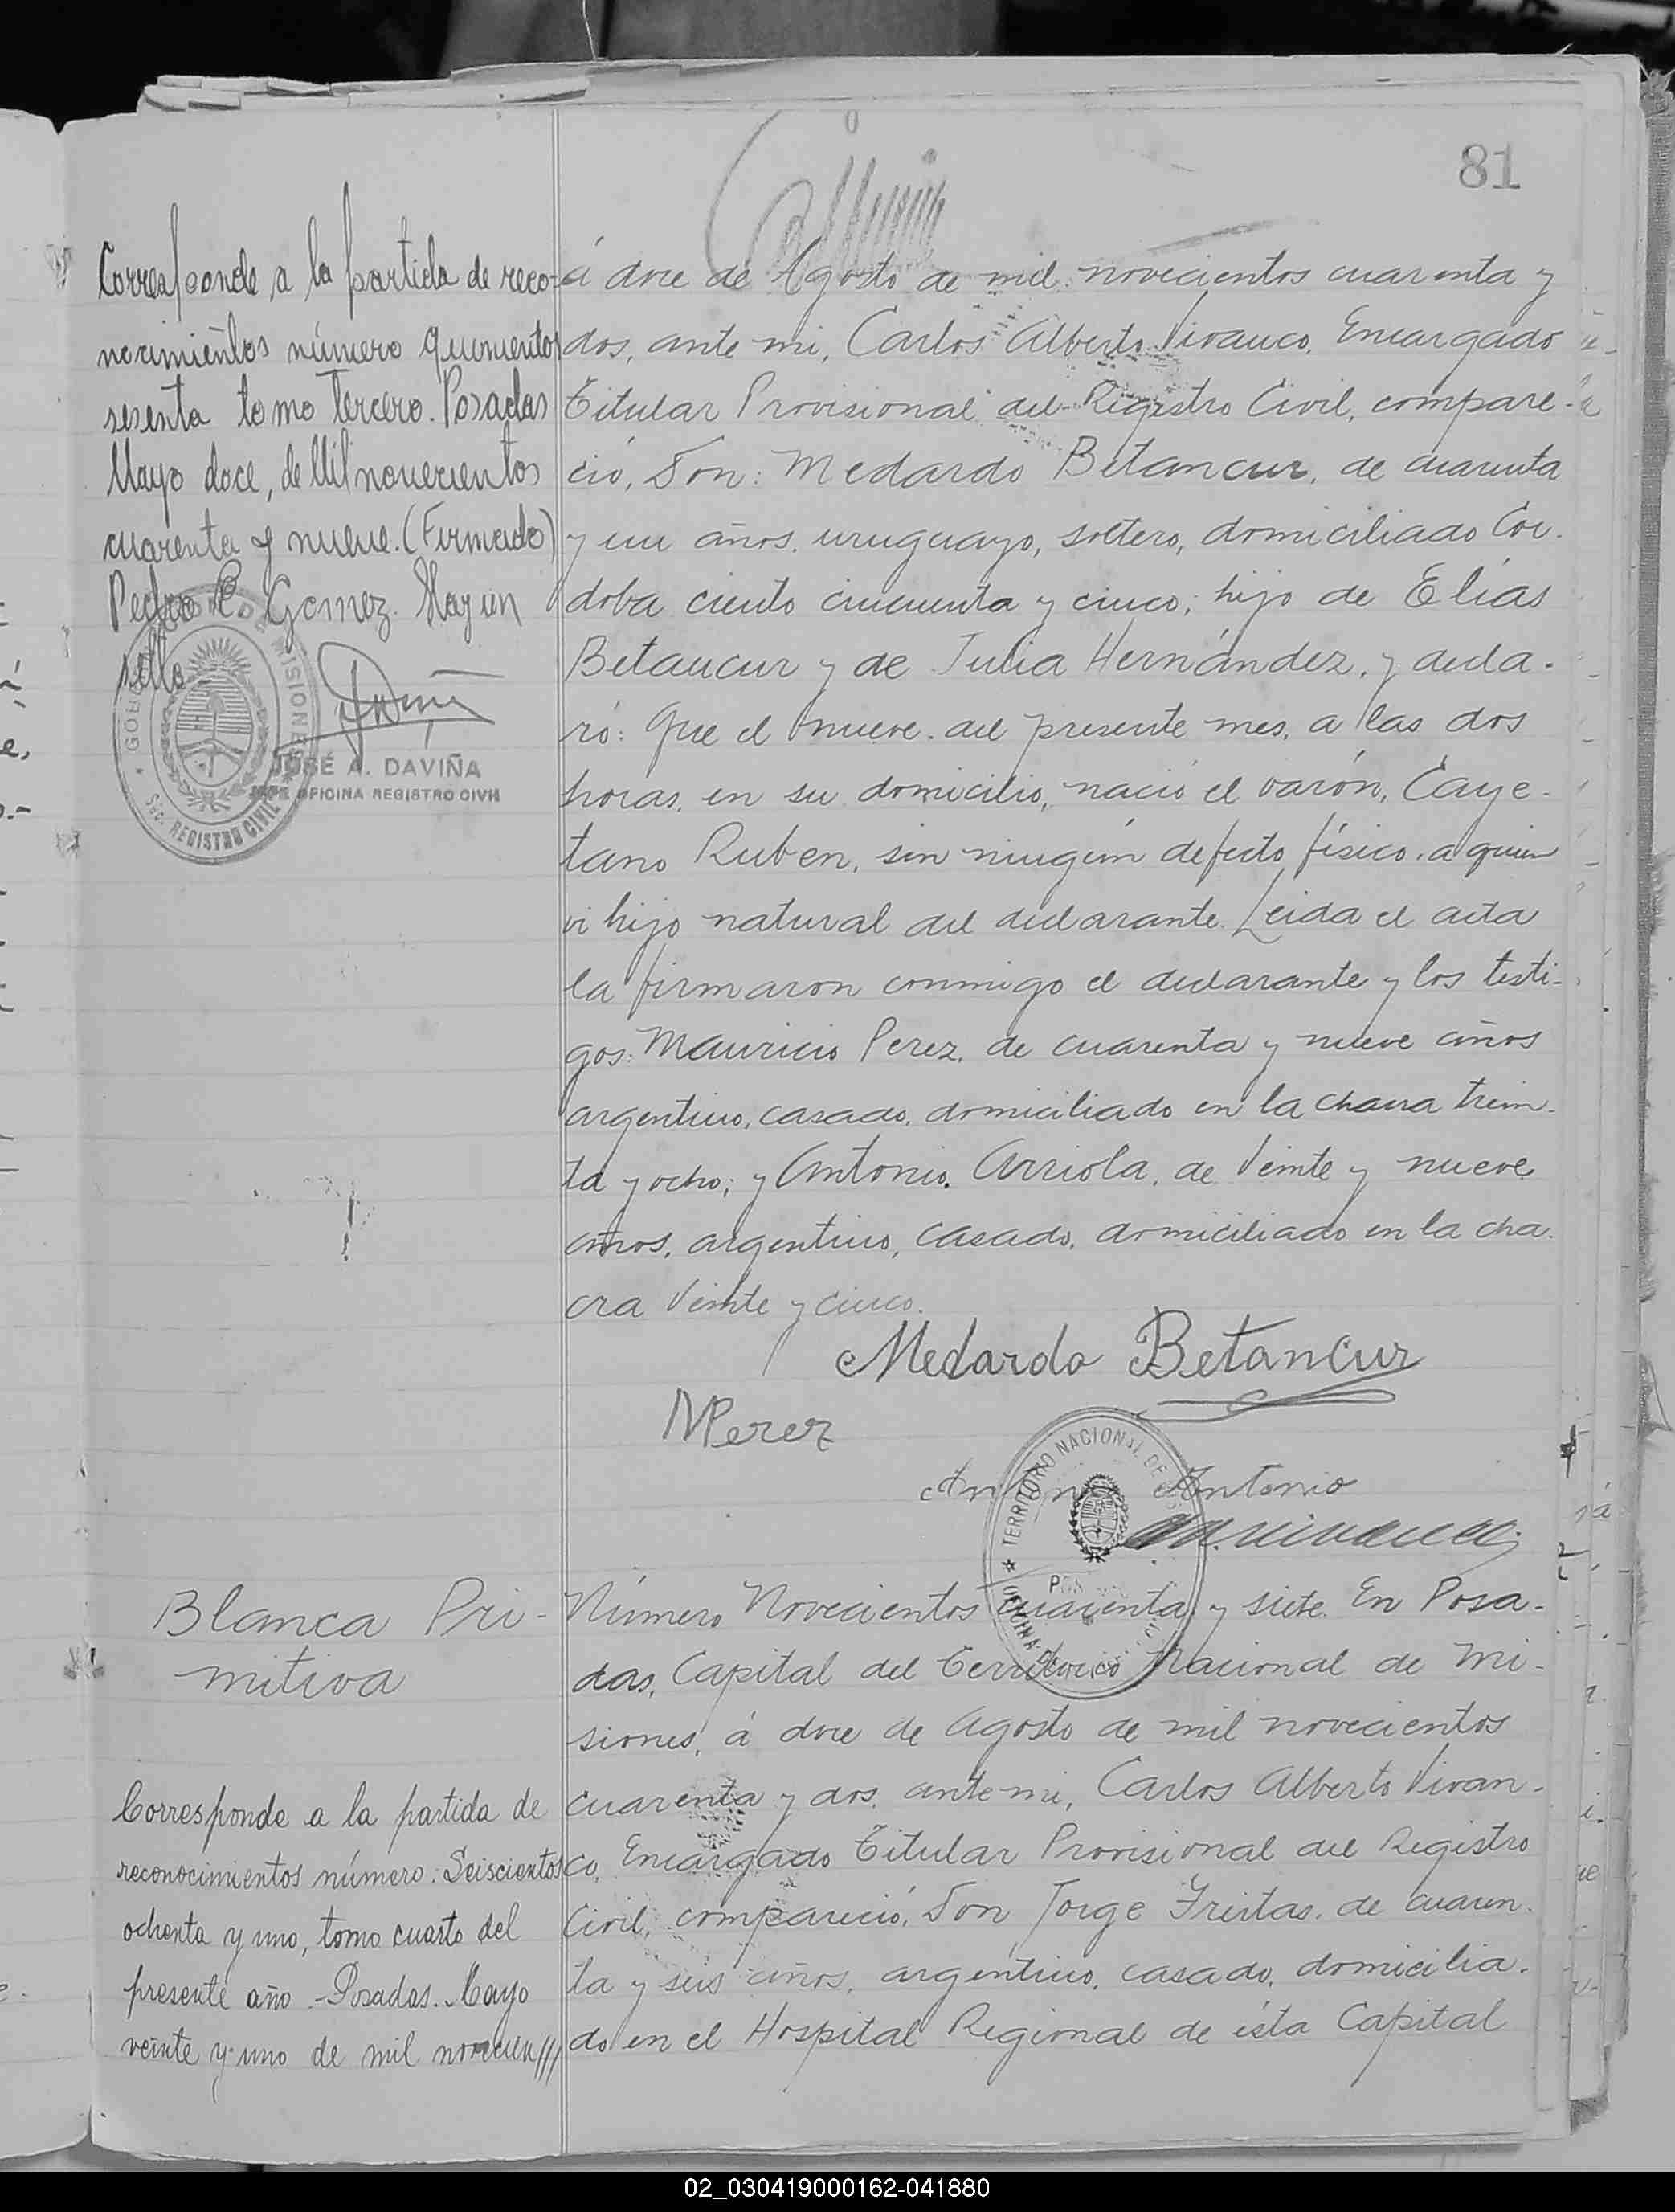 81
Corresponde a la partida de reco-
nocimientos número quinientos
sesenta tomo tercero. Posadas
Mayo doce, de Mil novecientos
cuarenta y nueve. (Firmado)
Pedro C. Gomez. Hay un
sello
JOSÉ A. DAVIÑA
JEFE OFICINA REGISTRO CIVIL
MISIONES
Sec. REGISTRO CIVIL
á doce de Agosto de mil novecientos cuarenta y
dos, ante mi, Carlos Alberto Vivanco, Encargado
Titular Provisional del Registro Civil, compare-
ció, Don: Medardo Betancur, de cuarenta
y un años, uruguayo, soltero, domiciliado Cor-
doba ciento cincuenta y cinco; hijo de Elías
Betancur y de Julia Hernández, y decla-
ró: Que el nueve del presente mes, a las dos
horas, en su domicilio, nació el varón, Caye-
tano Ruben, sin ningún defecto físico, a quien
vi hijo natural del declarante. Leida el acta
la firmaron conmigo el declarante y los testi-
gos: Mauricio Perez, de cuarenta y nueve años
argentino, casado, domiciliado en la chacra trein-
ta y ocho; y Antonio Arriola, de Veinte y nueve
años, argentino, casado, domiciliado en la cha-
cra Veinte y cinco.
Medardo Betancur
MPerez
Antonio
TERRITORIO NACIONAL DE
OFICINA
Blanca Pri-
mitiva
Corresponde a la partida de
reconocimientos número: Seiscientos
ochenta y uno, tomo cuarto del
presente año.-Posadas. Mayo
veinte y uno de mil novecien///
Número Novecientos cuarenta y siete. En Posa-
das, Capital del Territorio Nacional de Mi-
siones, á doce de Agosto de mil novecientos
cuarenta y dos, ante mi, Carlos Alberto Vivan-
co, Encargado Titular Provisional del Registro
Civil, compareció, Don Jorge Freitas, de cuaren-
ta y seis años, argentino, casado, domicilia-
do en el Hospital Regional de ésta Capital
02_030419000162-041880